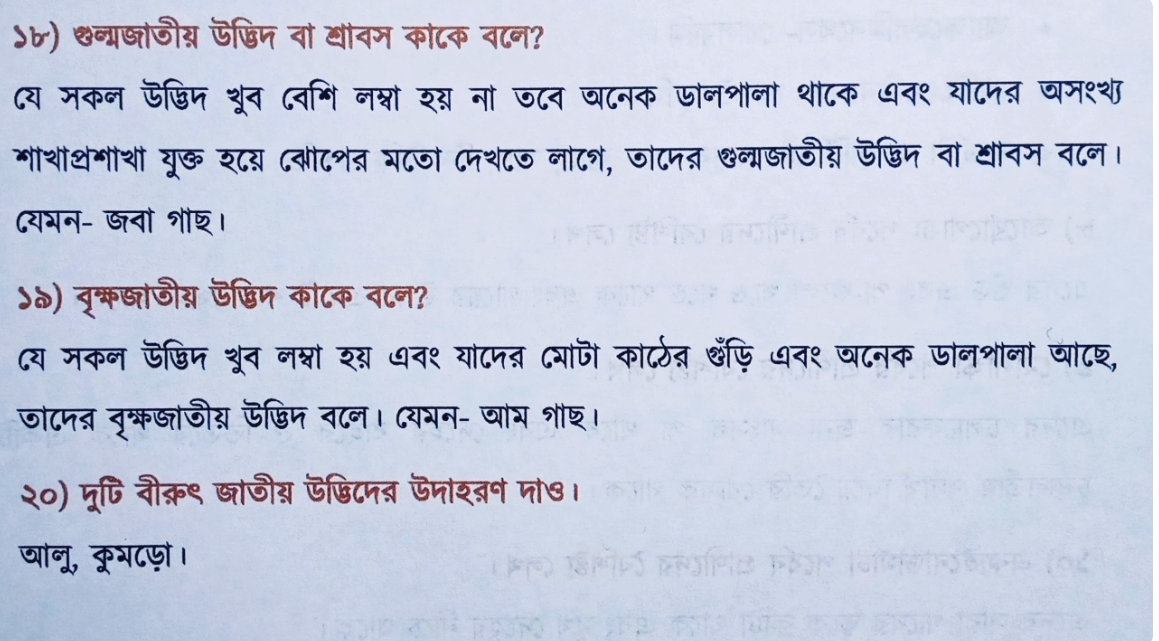 ১৮) গুল্মজাতীয় উদ্ভিদ বা শ্রাবস কাকে বলে?
যে সকল উদ্ভিদ খুব বেশি লম্বা হয় না তবে অনেক ডালপালা থাকে এবং যাদের অসংখ্য
শাখাপ্রশাখা যুক্ত হয়ে ঝোপের মতো দেখতে লাগে, তাদের গুল্মজাতীয় উদ্ভিদ বা শ্রাবস বলে।
যেমন- জবা গাছ।
১৯) বৃক্ষজাতীয় উদ্ভিদ কাকে বলে?
যে সকল উদ্ভিদ খুব লম্বা হয় এবং যাদের মোটা কাঠের গুঁড়ি এবং অনেক ডালপালা আছে,
তাদের বৃক্ষজাতীয় উদ্ভিদ বলে। যেমন- আম গাছ।
২০) দুটি বীরুৎ জাতীয় উদ্ভিদের উদাহরণ দাও।
আলু, কুমড়ো।